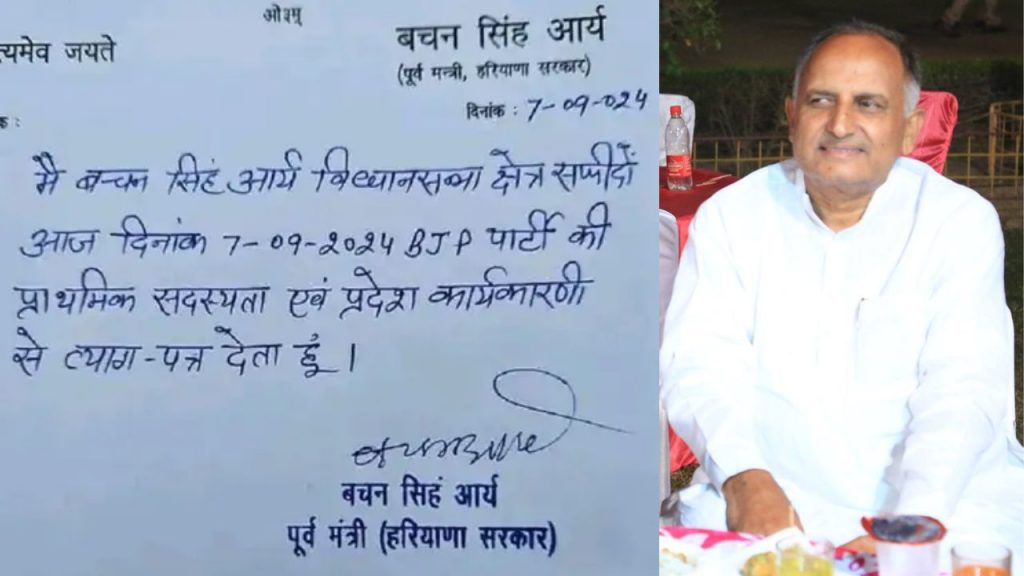 ओ३म्
त्यमेव जयते
बचन सिंह आर्य
(पूर्व मन्त्री, हरियाणा सरकार)
क :
दिनांक : 7-09-024
मै बच्चन सिहं आर्य विधानसभा क्षेत्र सफीदों
आज दिनांक 7-09-2024 BJP पार्टी की
प्राथमिक सदस्यता एवं प्रदेश कार्यकारणी
से त्याग-पत्र देता हूं।
बचन सिहं आर्य
पूर्व मंत्री (हरियाणा सरकार)